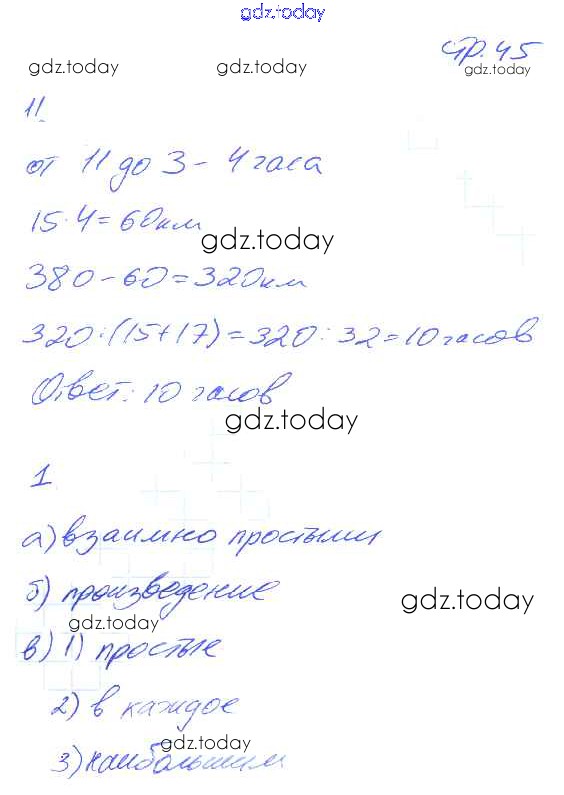 gdz.today
стр. 45
gdz.today gdz.today gdz.today
11.
от 11 до 3 - 4 часа
15·4=60км
gdz.today
380-60=320км
320:(15+17)=320:32=10 часов
Ответ: 10 часов
gdz.today
1
а) взаимно простыми
б) произведение
gdz.today
gdz.today
в) 1) простые
2) в каждое
gdz.today
3) наибольшим